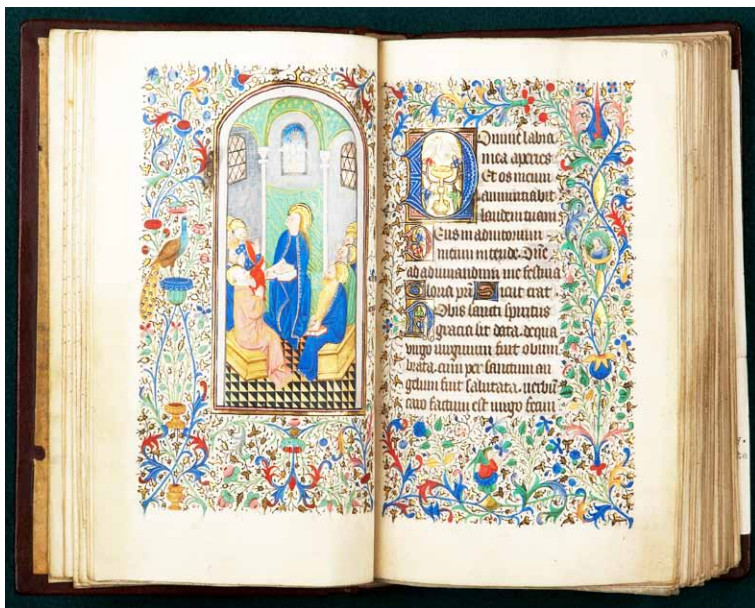 Domine labia
mea aperies
Et os meum
annunciabit
laudem tuam
Deus in adiutorium
meum intende. Dne
ad adiuuandum me festina
Gloria pri Sicut erat
Nobis sancti spiritus
gracia sit data. de qua
uirgo uirginum fuit obum
brata. cum per sanctum an
gelum fuit salutata. uerbu
caro factum est uirgo fecun